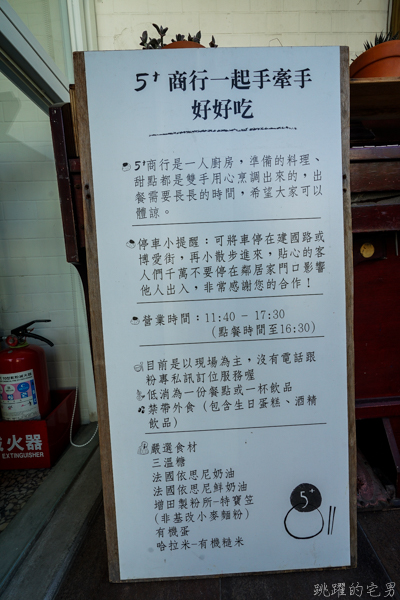 5⁺ 商行一起手牽手
好好吃
5⁺商行是一人廚房，準備的料理、
甜點都是雙手用心烹調出來的，出
餐需要長長的時間，希望大家可以
體諒。
停車小提醒：可將車停在建國路或
博愛街，再小散步進來，點心的客
人們千萬不要停在鄰居家門口影響
他人出入，非常感謝您的合作！
營業時間：11:40 - 17:30
(點餐時間至16:30)
目前是以現場為主，沒有電話跟
粉專私訊訂位服務喔
低消為一份餐點或一杯飲品
禁帶外食 (包含生日蛋糕、酒精
飲品)
嚴選食材
三溫糖
法國依思尼奶油
法國依思尼鮮奶油
增田製粉所-特寶笠
(非基改小麥麵粉)
有機蛋
哈拉米-有機糙米
5⁺
火器
EXTINGUISHER
跳躍的宅男